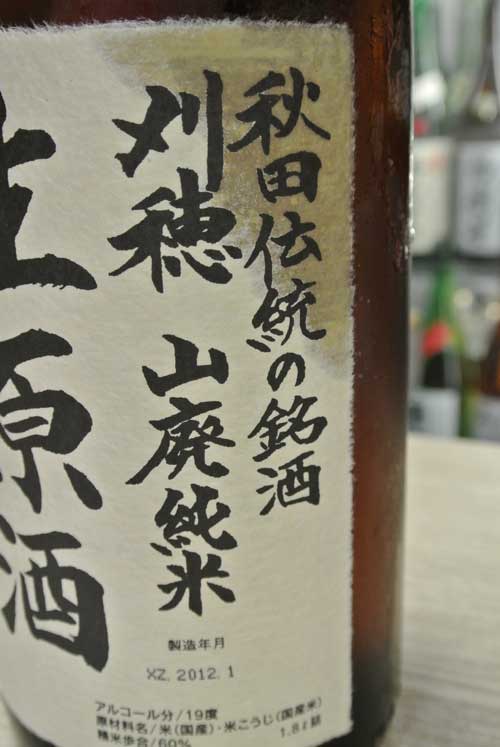 秋田伝統の銘酒
刈穂 山廃純米
生原酒
製造年月
XZ. 2012. 1
アルコール分/19度
原材料名/米(国産)・米こうじ(国産米)
精米歩合/60%
1.8ℓ詰